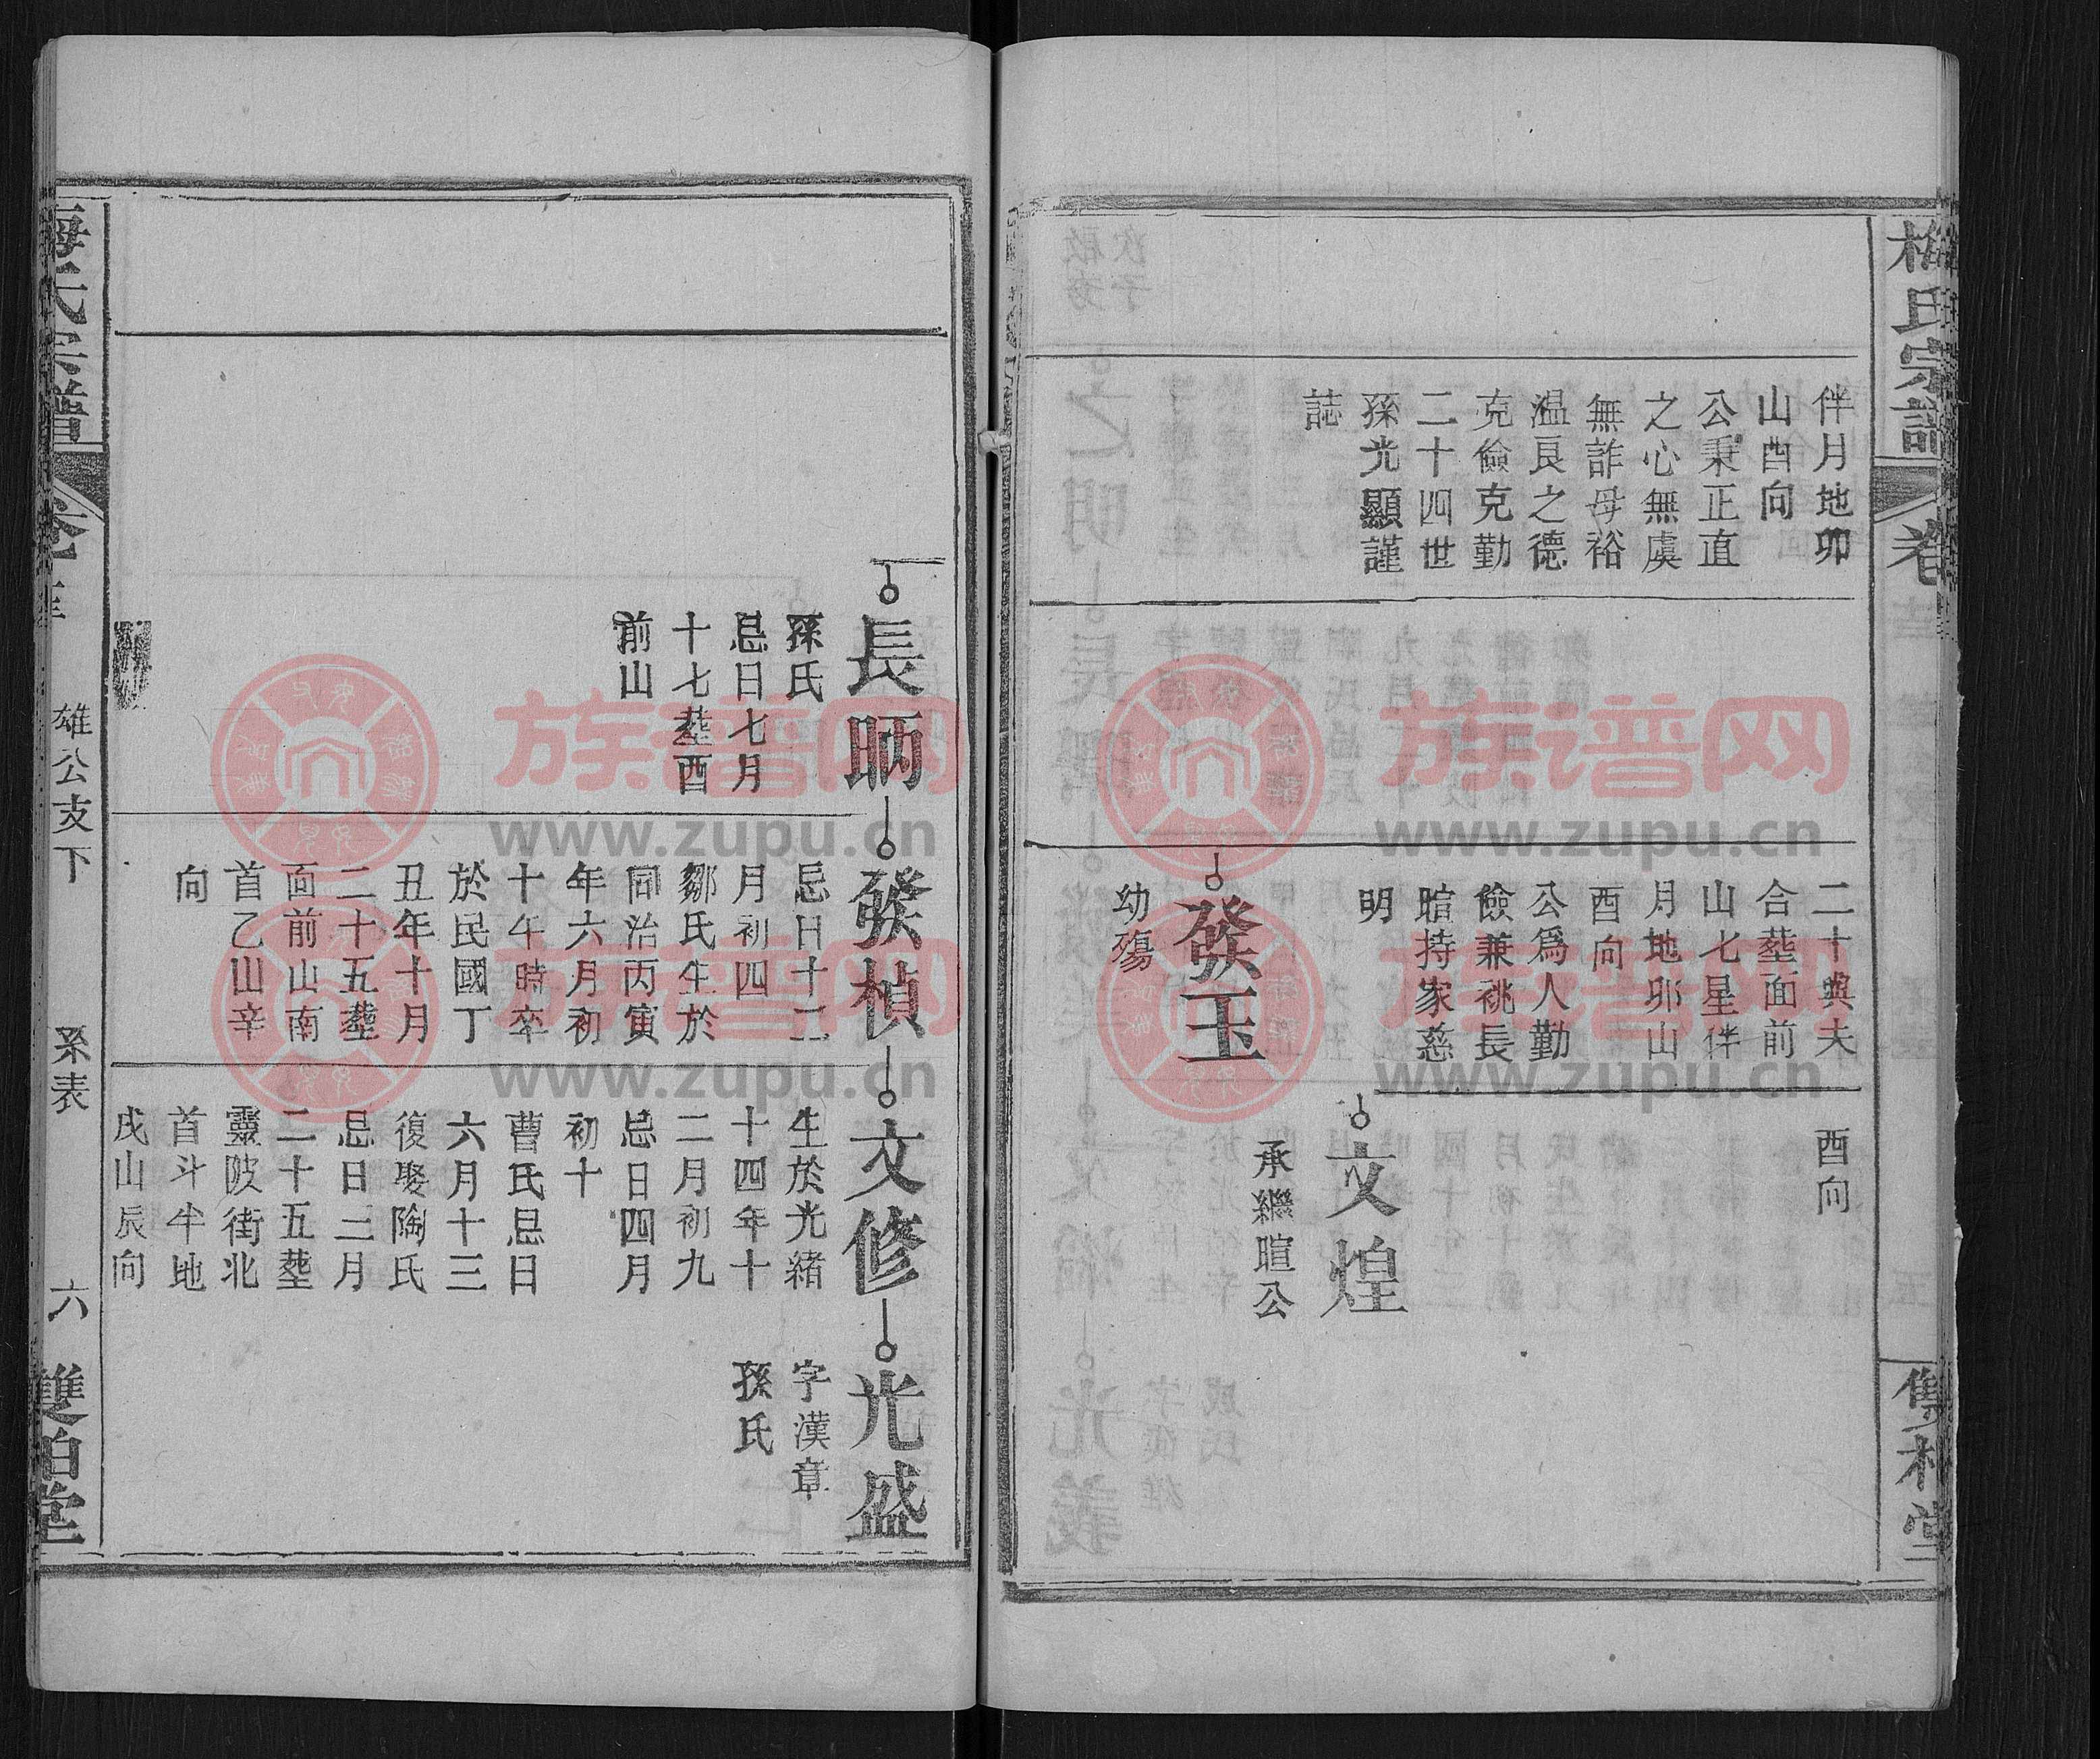 梅氏宗譜
卷
雙柏堂
伴月地卯
山酉向
公秉正直
之心無虞
無詐母裕
温良之德
克儉克勤
二十四世
孫光顯謹
誌
二十與夫
合塟面前
山七星伴
月地卯山
酉向
公爲人勤
儉兼祧長
暄持家慈
明
發玉
幼殤
酉向
文煌
承繼暄公
長昞
孫氏
忌日七月
十七塟酉
前山
發楨
忌日十二
月初四
鄒氏生於
同治丙寅
年六月初
十午時卒
於民國丁
丑年十月
二十五塟
面前山南
首乙山辛
向
文修
生於光緒
十四年十
二月初九
忌日四月
初十
曹氏忌日
六月十三
復娶陶氏
忌日二月
二十五塟
靈陂街北
首斗牛地
戌山辰向
光盛
字漢章
孫氏
梅氏宗譜
雄公支下
系表
六
雙柏堂
族谱网
www.zupu.cn
族谱网
www.zupu.cn
族谱网
www.zupu.cn
族谱网
www.zupu.cn